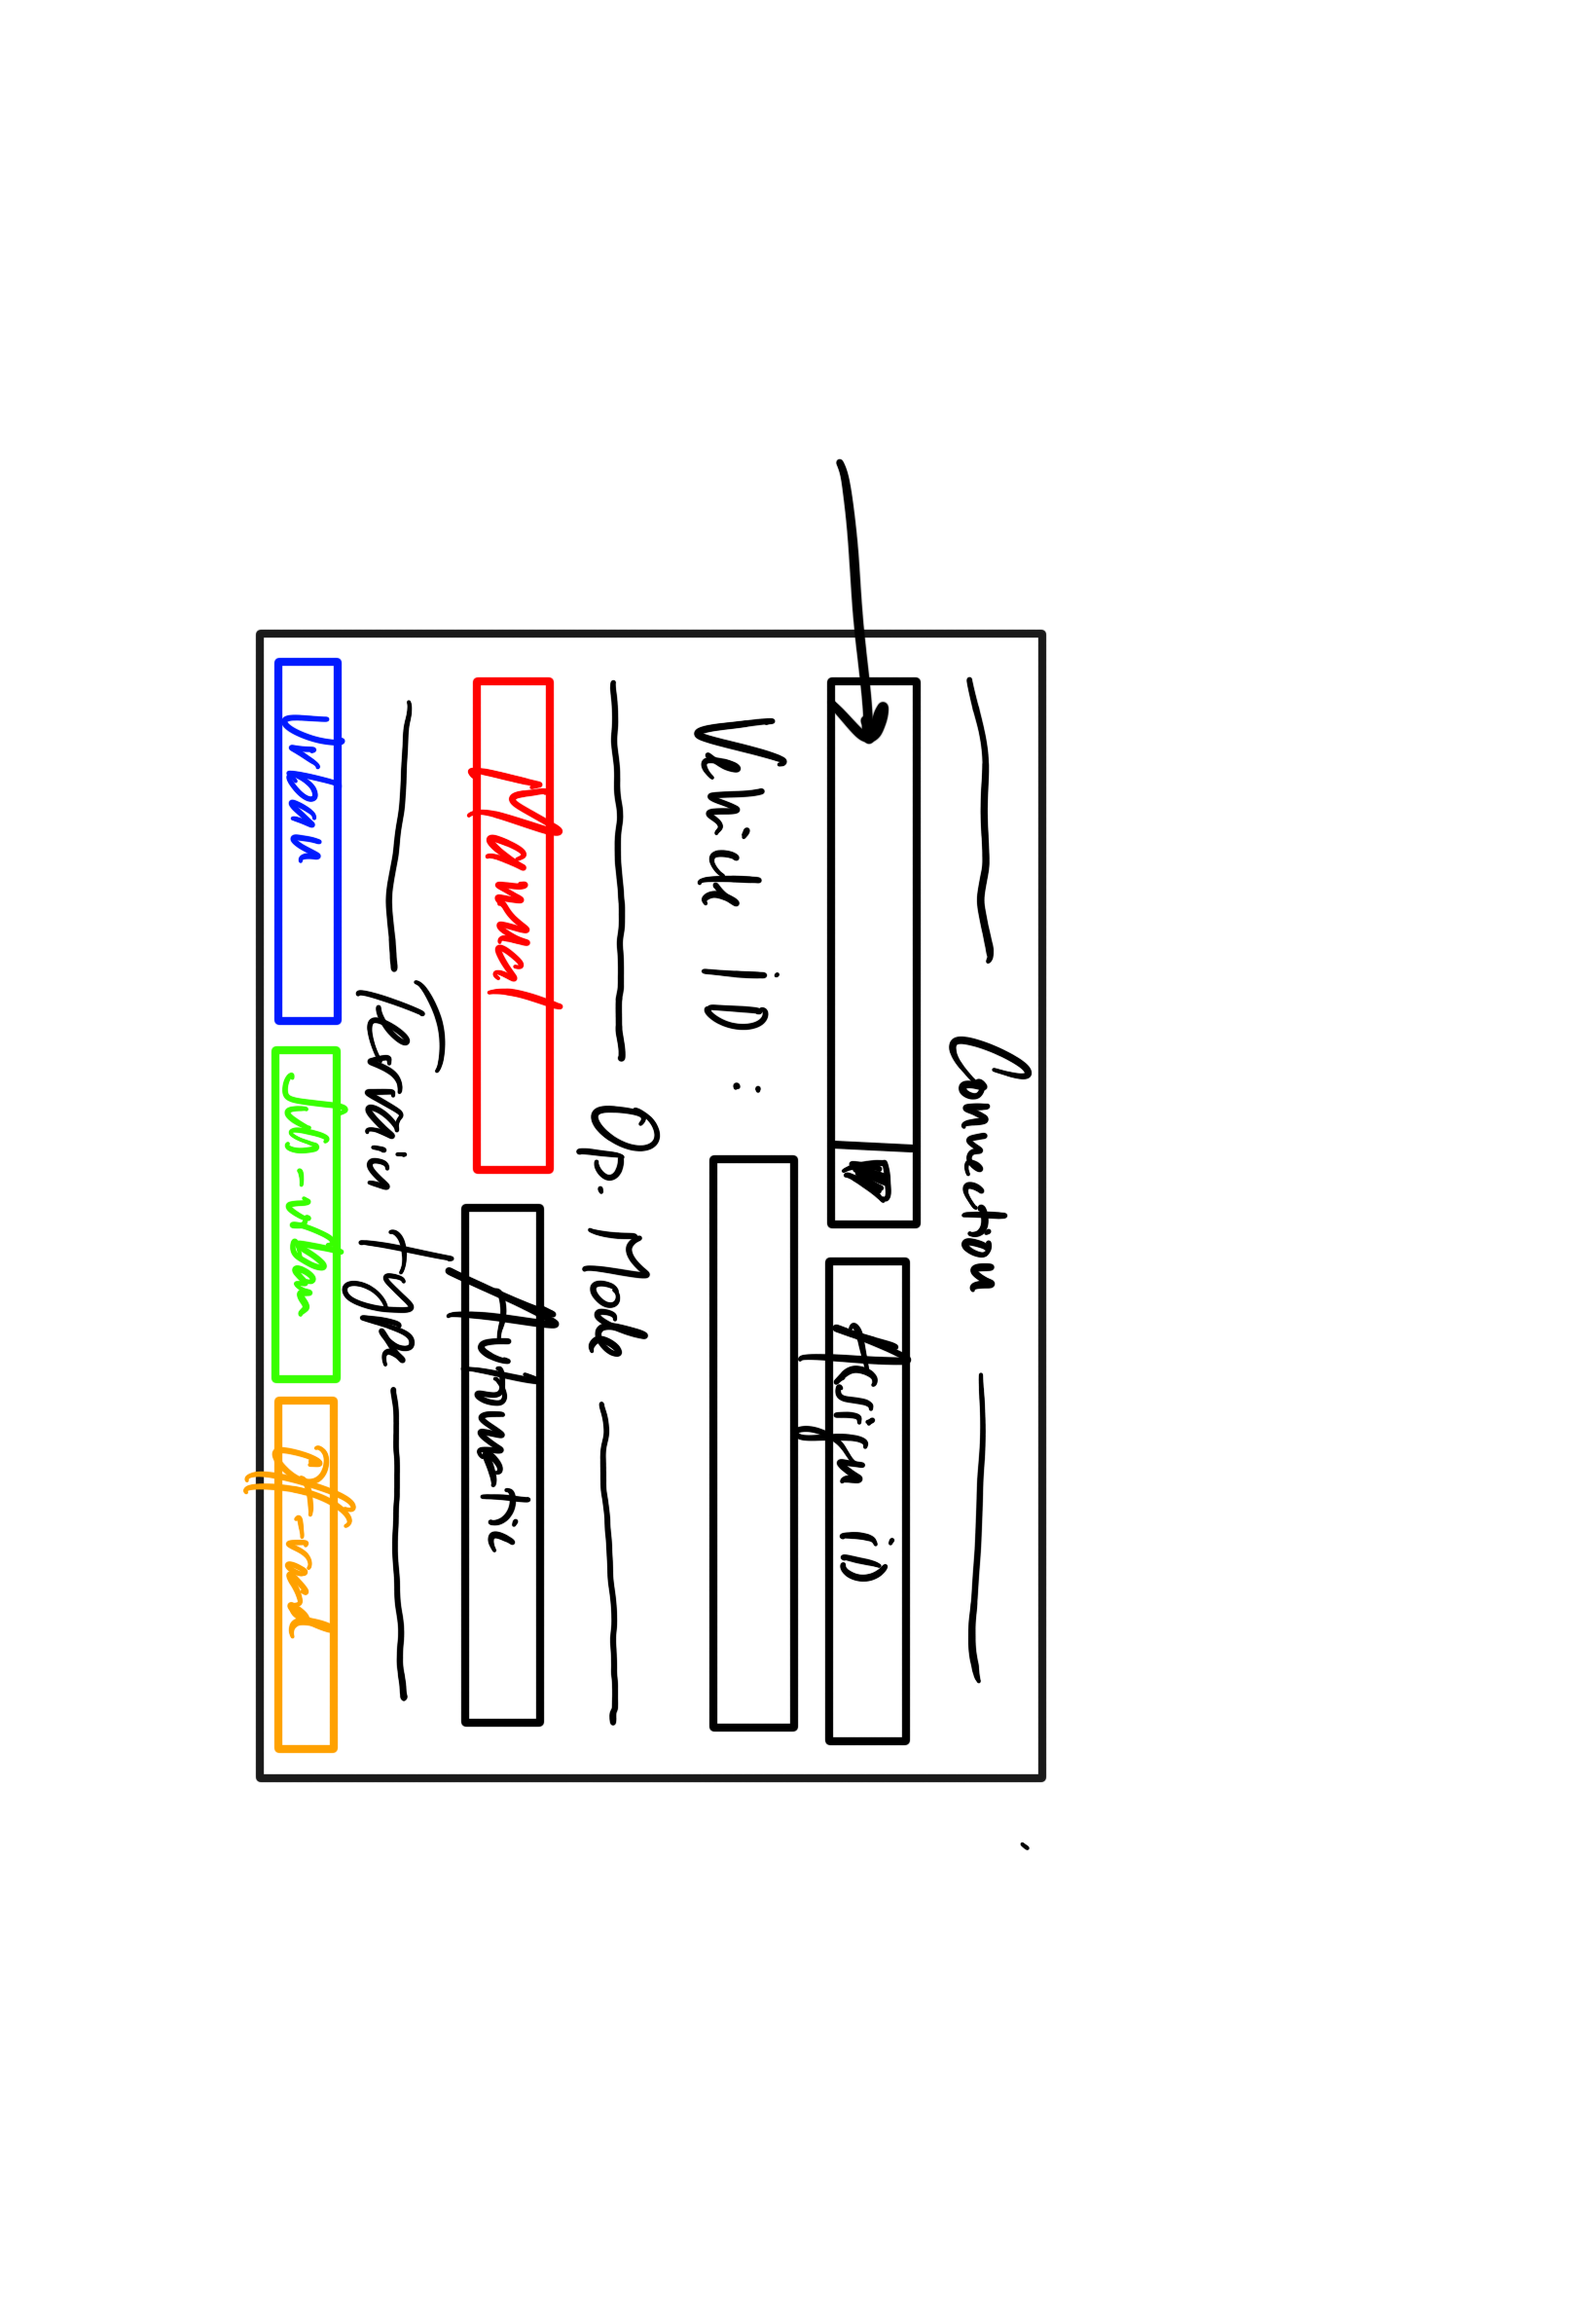 Connection
Assign iD
Vehicle ID :
Op. Mode
Manual Automatic
Terrain Type
Urban Sub-urban Off-road